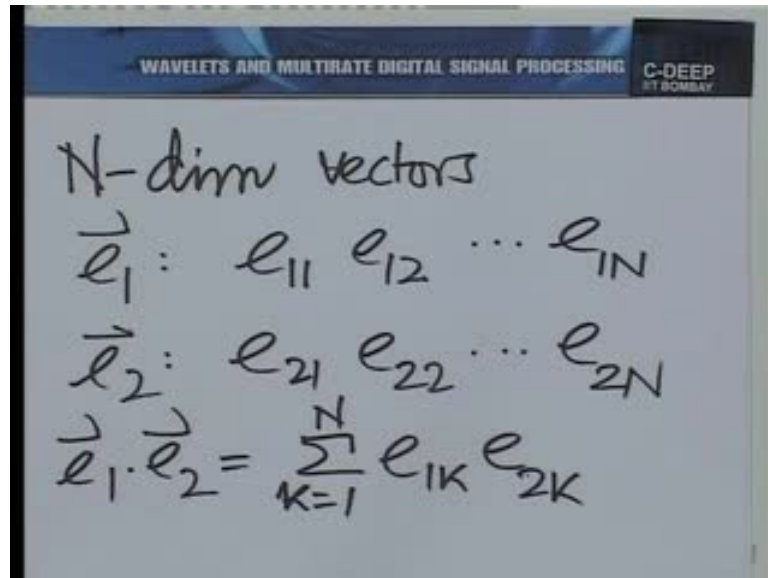 WAVELETS AND MULTIRATE DIGITAL SIGNAL PROCESSING
C-DEEP
IIT BOMBAY
N-dim vectors
e⃗₁ : e₁₁ e₁₂ ... e₁N
e⃗₂ : e₂₁ e₂₂ ... e₂N
e⃗₁ . e⃗₂ = Σ_{K=1}^{N} e₁K e₂K